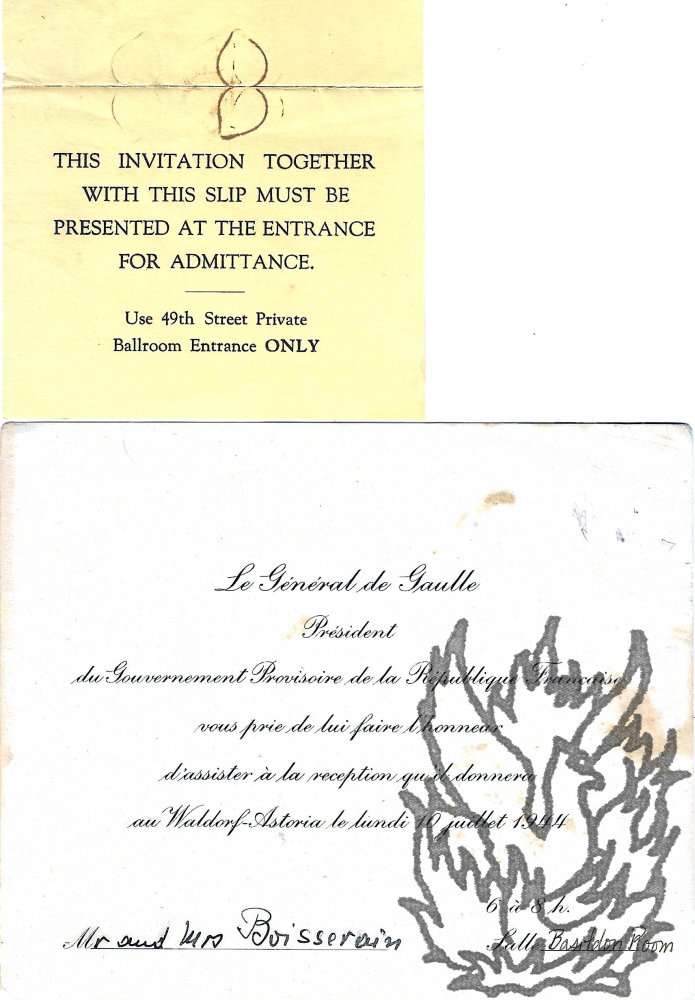 THIS INVITATION TOGETHER
WITH THIS SLIP MUST BE
PRESENTED AT THE ENTRANCE
FOR ADMITTANCE.
Use 49th Street Private
Ballroom Entrance ONLY
Le Général de Gaulle
Président
du Gouvernement Provisoire de la République Française
vous prie de lui faire l'honneur
d'assister à la reception qu'il donnera
au Waldorf-Astoria le lundi 10 juillet 1944
6 à 8 h.
Mr and Mrs Boisserain
Salle Basildon Room